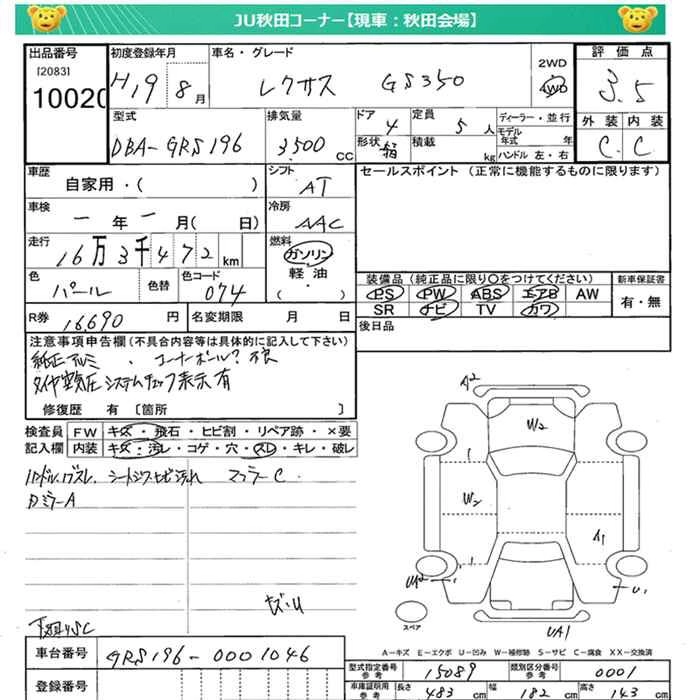 JU秋田コーナー【現車：秋田会場】
出品番号 初度登録年月 車名・グレード 2WD 評価点
[2083] H19 8月 レクサス GS350 4WD 3.5
10020 外装 内装
型式 排気量 ドア 定員 ディーラー・並行 C C
DBA-GRS196 3500 CC 4 5人 モデル年式 年
形状 箱 積載 kg ハンドル 左・右
車歴 シフト セールスポイント（正常に機能するものに限ります）
自家用・( ) AT
車検 冷房
一年一月( 日) AAC
走行 燃料
16万3千472km ガソリン
軽油
・( )
色 色替 色コード 装備品（純正品に限り〇をつけてください） 新車保証書
パール 074 PS PW ABS エアB AW 有・無
SR ナビ TV カワ
R券 16,690円 名変期限 月 日 後日品
注意事項申告欄(不具合内容等は具体的に記入して下さい)
純正アルミ、コーナーポール?不良
タイヤ空気圧システムチェック表示有
修復歴 有 〔箇所 〕
検査員 FW キズ・飛石・ヒビ割・リペア跡・×要
記入欄 内装 キズ・汚レ・コゲ・穴・スレ・キレ・破レ
ハンドル、ワズレ、シートシワ、ヒビ汚れ マフラーC
A2
W2
W2
A1
W2
U1
キズ・U
スペア
UA1
下廻りSC
A－キズ E－エクボ U－凹み W－補修跡 S－サビ C－腐食 XX－交換済
車台番号 GRS196-0001046
型式指定番号 参考 15089 類別区分番号 参考 0001
登録番号
車庫証明用 参考 長さ 483 cm 幅 182 cm 高さ 143 cm